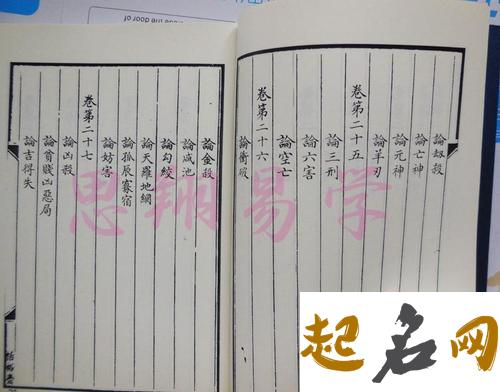 ose the door of
論劫殺
論亡神
論元神
論羊刃
卷第二十五
論三刑
論六害
論空亡
卷第二十六
論衝破
論金殺
論咸池
論勾絞
論天羅地網
論孤辰寡宿
論妨害
卷第二十七
論凶殺
論貧賤凶惡局
論吉得失
思翔易学
起名网